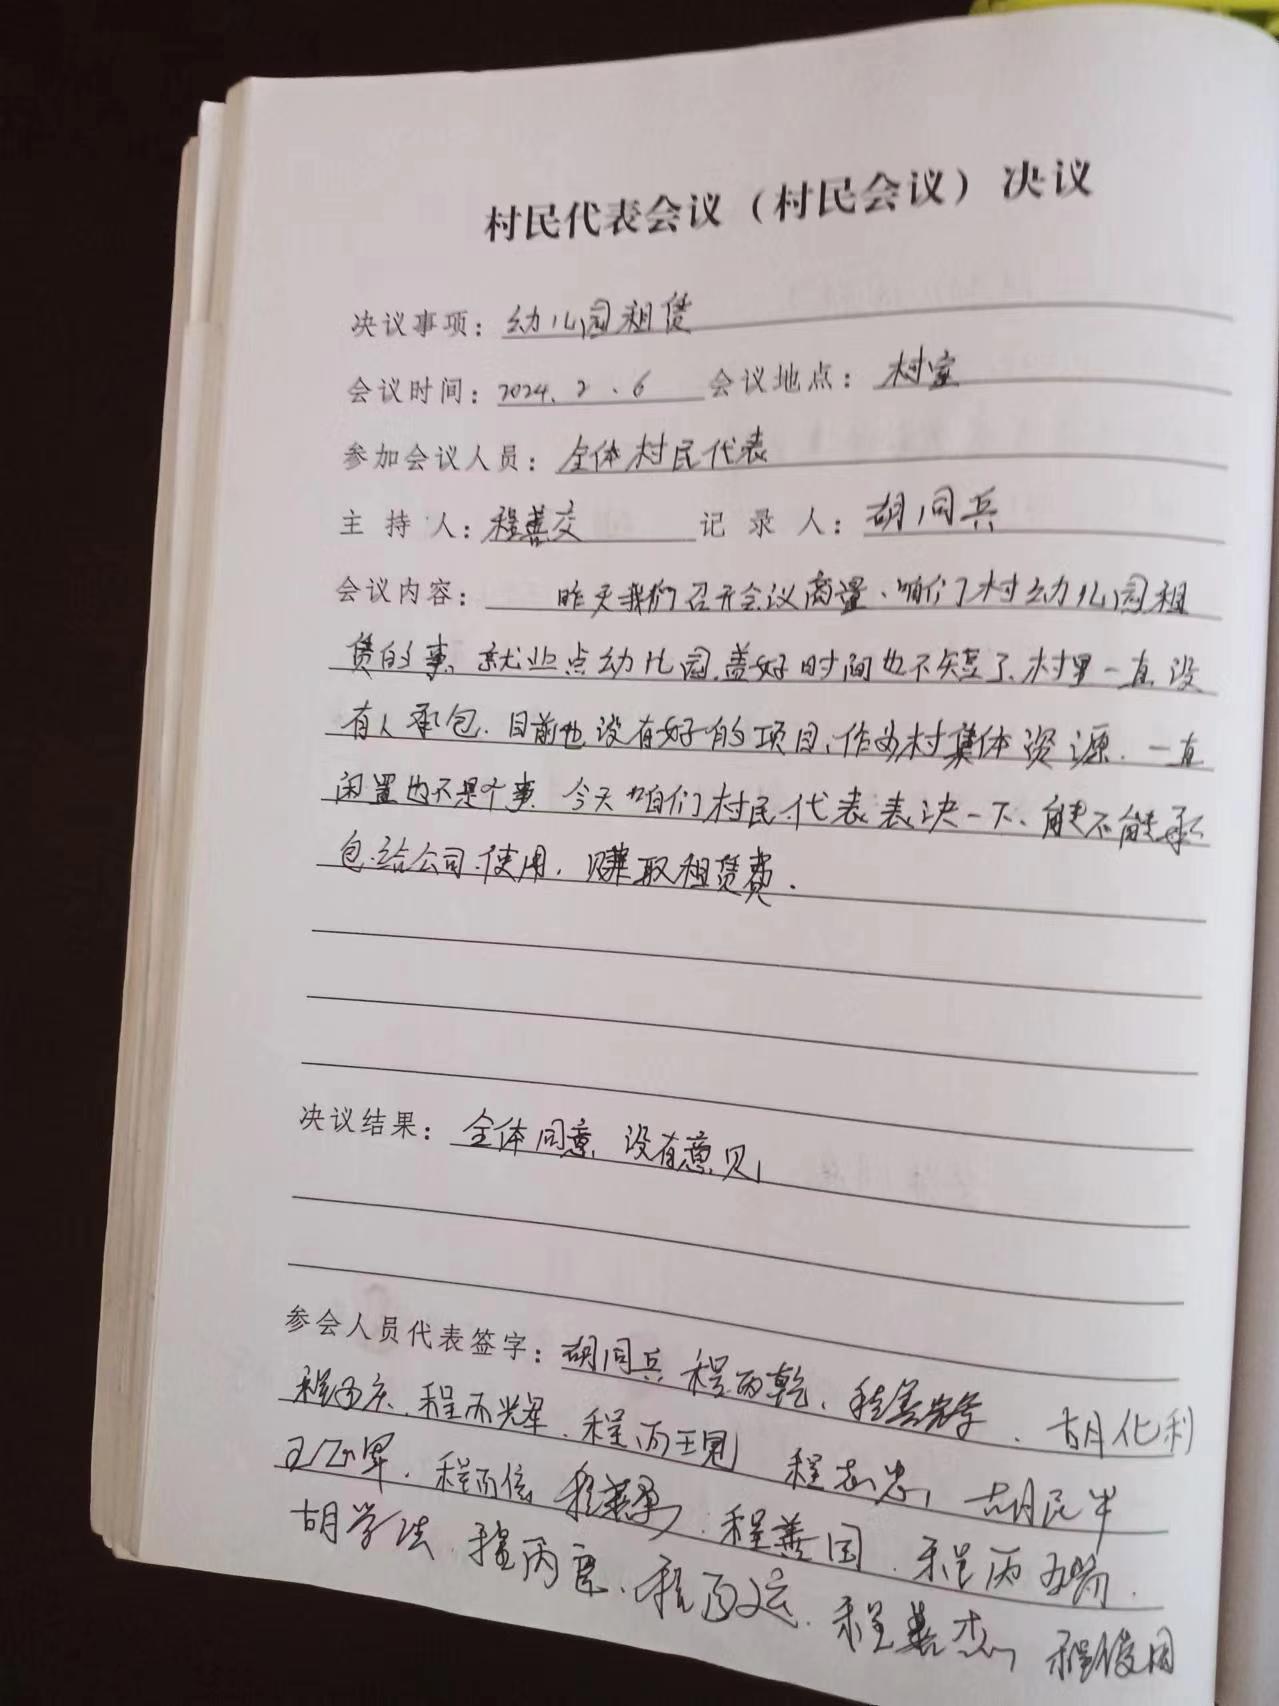 村民代表会议（村民会议）决议
决议事项：幼儿园租赁
会议时间：2024.2.6 会议地点：村室
参加会议人员：全体村民代表
主持人：程善交 记录人：胡同兵
会议内容：昨天我们召开会议商量、咱们村幼儿园租
赁的事、就业点幼儿园.盖好时间也不短了、村里一直没
有人承包.目前也没有好的项目、作为村集体资源.一直
闲置也不是个事.今天咱们村民代表表决一下、能不能承
包给公司使用.赚取租赁费.
决议结果：全体同意、没有意见
参会人员代表签字：胡同兵 程丙乾、胡化利
程丙辉.程志忠 胡民牛
程丙信 程善国.程丙
胡学法.程丙运.程善杰 程俊同